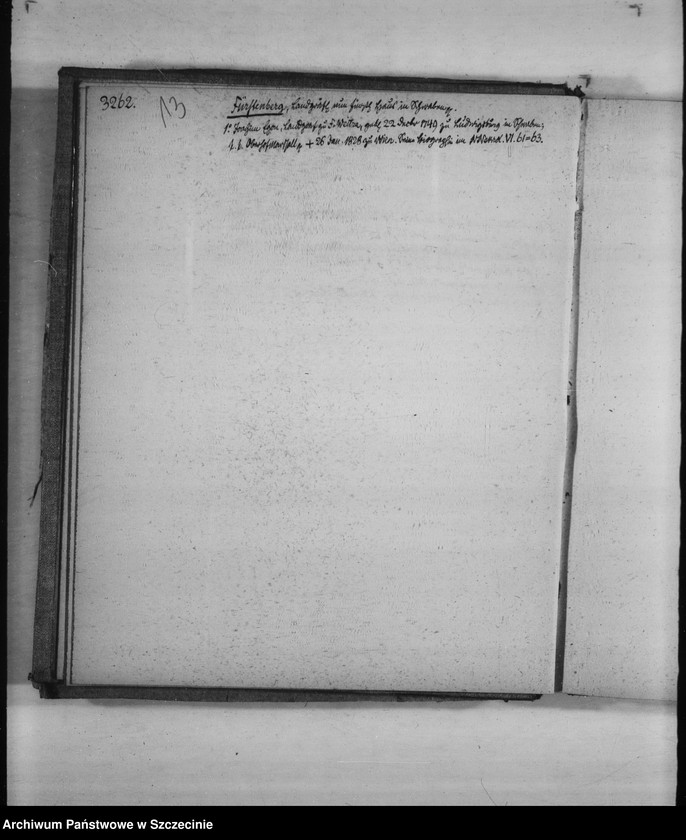 3262.
13
Fürstenberg, Landgrafen, ein fürstl. Haus in Schwaben.
1. Joachim Egon, Landgraf zu F. Weitra, geb. 22 Decbr 1749 zu Ludwigsburg in Schwaben;
k. k. Obersthofmarschall, + 26 Jan. 1828 zu Wien. Seine Biographie im N. Nekrol. VI. 61=63.
Archiwum Państwowe w Szczecinie